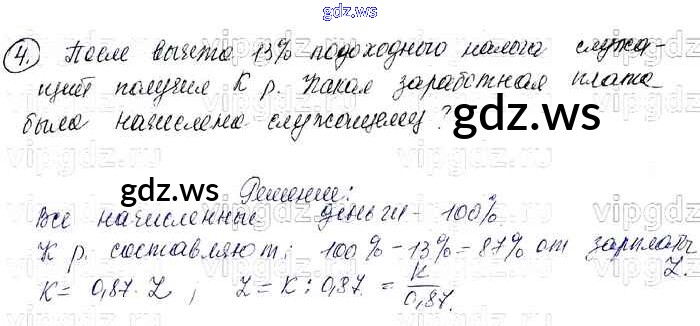 gdz.ws
4. После вычета 13% подоходного налога служа-
щий получил К р. Какая заработная плата
была начислена служащему?
gdz.ws
gdz.ws
Решение:
Все начисленные деньги - 100%
К р. составляют: 100% - 13% = 87% от зарплаты
Z.
К = 0,87 · Z ; Z = К : 0,87 = К/0,87.